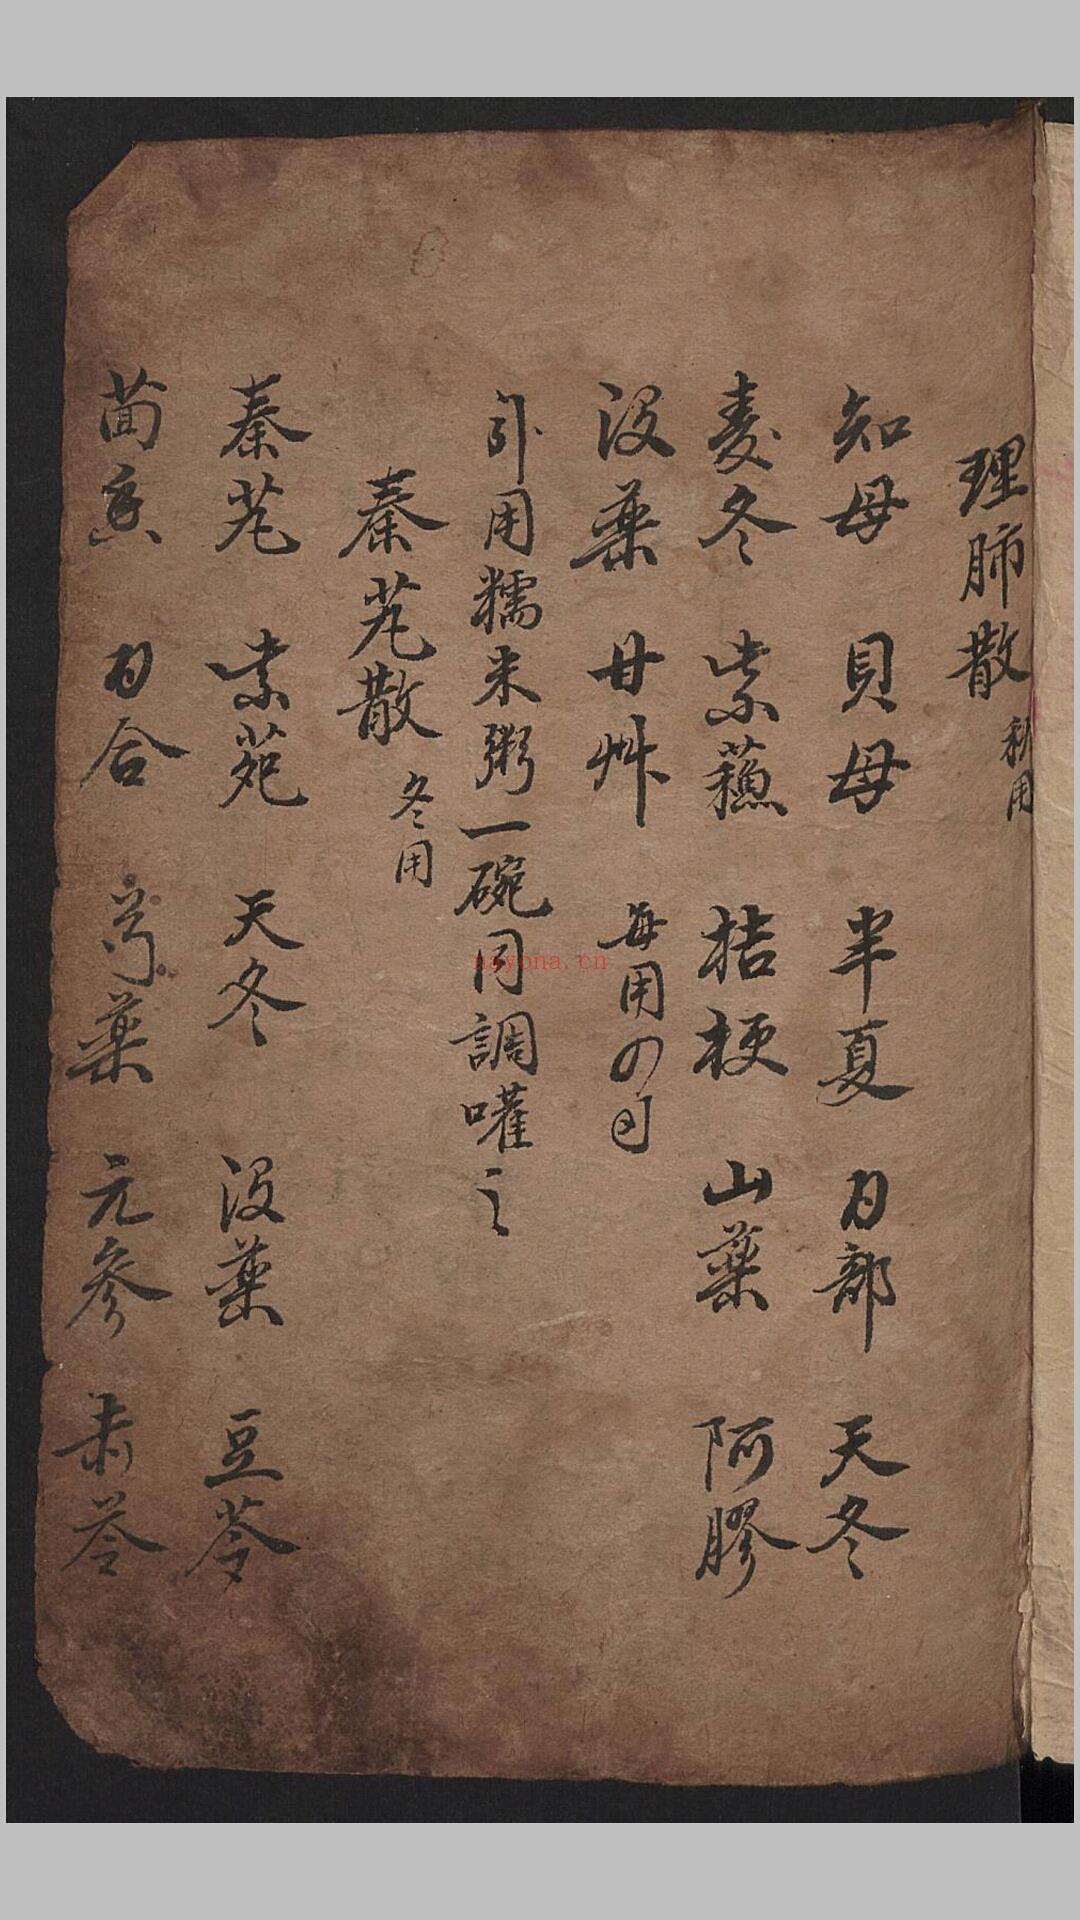 理肺散 秋用
知母 貝母 半夏 百部 天冬
麦冬 紫蘓 桔梗 山薬 阿膠
没薬 甘艸 每用四
引用糯米粥一碗同調嚾之
秦艽散 冬用
秦艽 紫菀 天冬 没薬 豆苓
茴香 百合 芍薬 元参 赤苓
nayona.cn